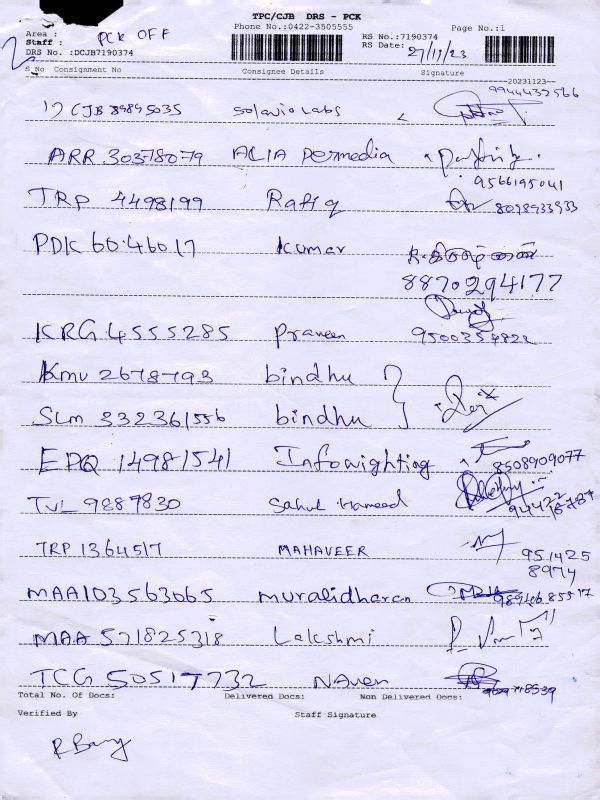 TPC/CJB DRS - PCK
Phone No.:0422-3505555 Page No.:1
Area : PCK OFF
Staff :
RS No.:7190374
DRS No. :DCJB7190374 RS Date: 27/11/23
S No Consignment No Consignee Details Signature
--20231123--
1) CJB 89895035 solavio Labs 9944432566
ARR 30378079 ALIA Permedia
9566195041
TRP 4498199 Rafiq 8098933933
PDK 6046017 Kumar
8870294177
KRG 4555285 praveen 9500354822
Kmu 2678793 bindhu
SLM 332361556 bindhu
EPQ 14981541 Infowighting 8508909077
TVL 9887830 Sahul Hameed
TRP 1364517 MAHAVEER 951425
8974
MAA103563065 muralidharan
MAA 571825318 Lakshmi
TCG 50517732 Naven
Total No. Of Docs: Delivered Docs: Non Delivered Docs:
Verified By Staff Signature